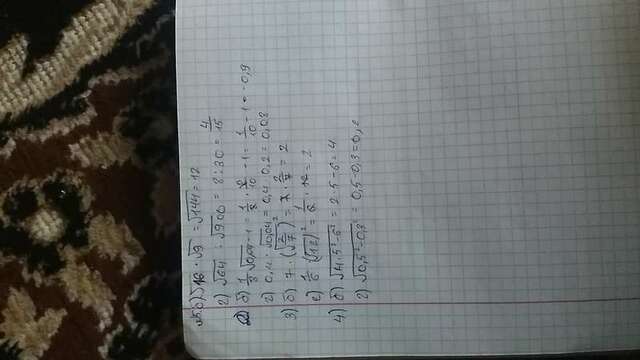 №5. б) √16 · √9 = √144 = 12
г) √64 : √900 = 8 : 30 = 4/15
2) б) 1/3 √0,09 - 1 = 1/3 · /10 - 1 = 1/10 - 1 = -0,9
г) 0,4 · √0,04 = 0,4 · 0,2 = 0,08
3) б) 7 · (√2/7)² = 7 · 2/7 = 2
е) 1/6 · (√12)² = 1/6 · 12 = 2
4) б) √4 · 5² - 6² = 2 · 5 - 6 = 4
г) √0,5² - 0,3² = 0,5 - 0,3 = 0,2